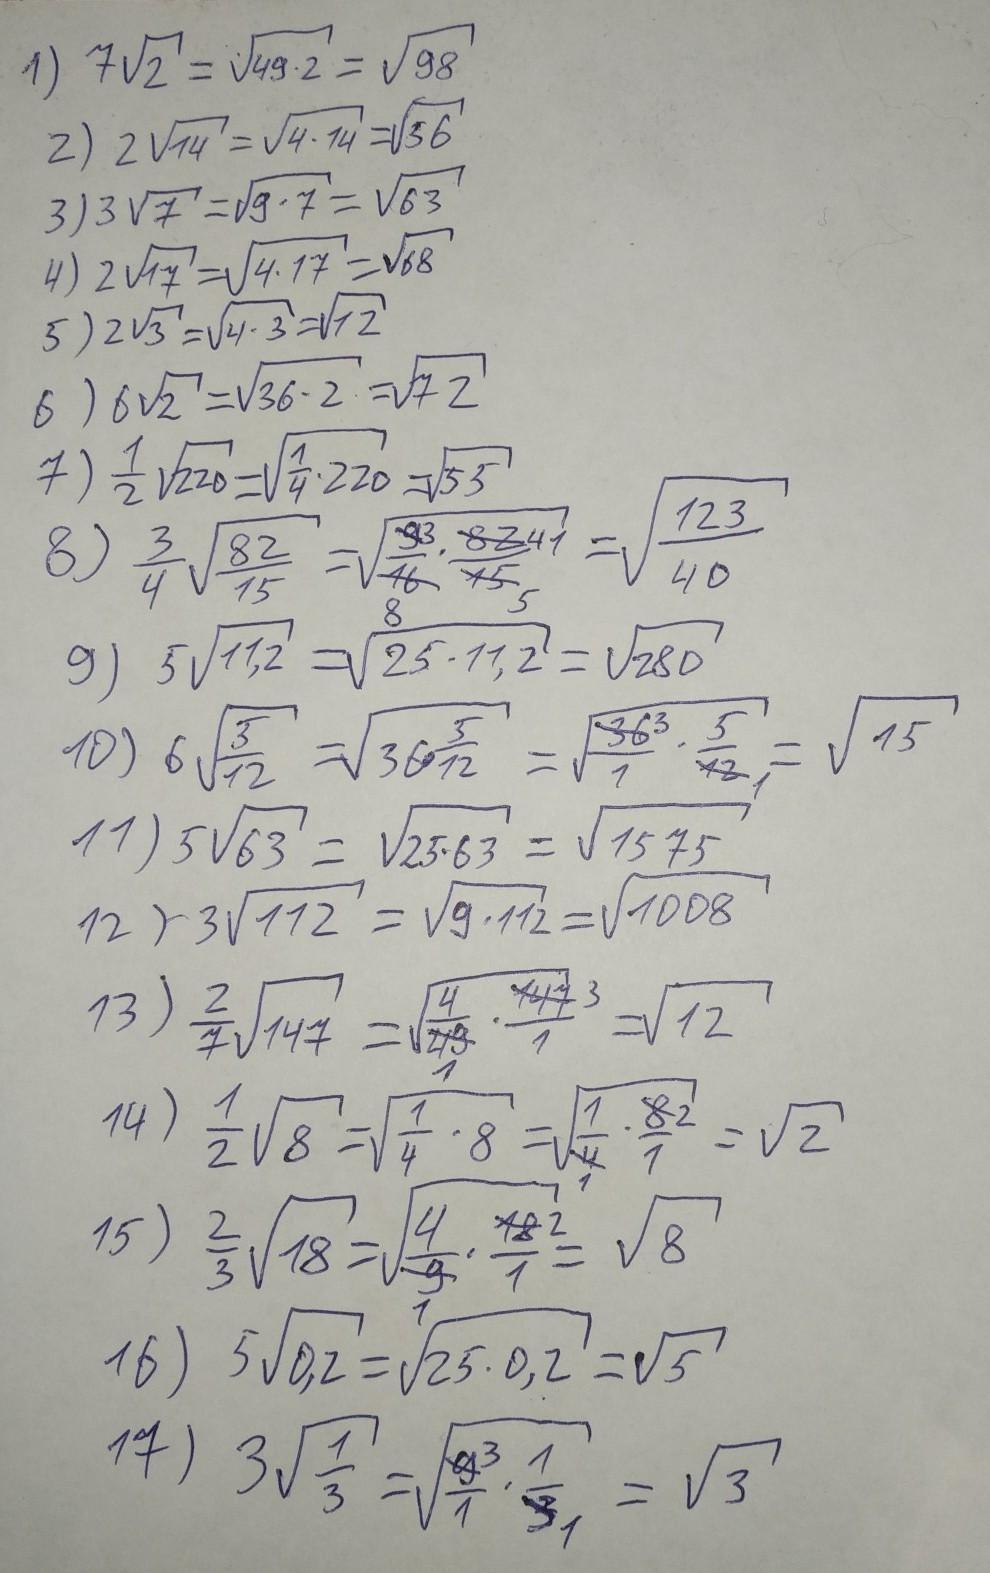 1) 7√2 = √49·2 = √98
2) 2√14 = √4·14 = √56
3) 3√7 = √9·7 = √63
4) 2√17 = √4·17 = √68
5) 2√3 = √4·3 = √12
6) 6√2 = √36·2 = √72
7) 1/2 √220 = √1/4·220 = √55
8) 3/4 √82/15 = √9 3/16 8 · 82 41/15 5 = √123/40
9) 5√11,2 = √25·11,2 = √280
10) 6√5/12 = √36·5/12 = √36 3/1 · 5/12 1 = √15
11) 5√63 = √25·63 = √1575
12) 3√112 = √9·112 = √1008
13) 2/7 √147 = √4/49 1 · 147 3/1 = √12
14) 1/2 √8 = √1/4·8 = √1/4 1 · 8 2/1 = √2
15) 2/3 √18 = √4/9 1 · 18 2/1 = √8
16) 5√0,2 = √25·0,2 = √5
17) 3√1/3 = √9 3/1 · 1/3 1 = √3